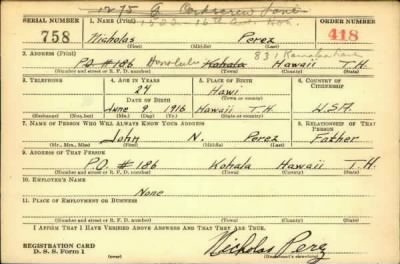 1275 A
1522 - 16th Ave. Hon.
SERIAL NUMBER 1. NAME (Print) ORDER NUMBER
758 Nicholas Perez 418
(First) (Middle) (Last)
2. ADDRESS (Print)
P.O. #186 Honolulu Kohala Hawaii T.H.
(Number and street or R. F. D. number) (Town) (County) (State)
3. TELEPHONE 4. AGE IN YEARS 5. PLACE OF BIRTH 6. COUNTRY OF CITIZENSHIP
24 Hawi
DATE OF BIRTH (Town or county)
June 9 1916 Hawaii T.H. U.S.A.
(Exchange) (Number) (Mo.) (Day) (Yr.) (State or country)
7. NAME OF PERSON WHO WILL ALWAYS KNOW YOUR ADDRESS 8. RELATIONSHIP OF THAT PERSON
John N. Perez Father
(Mr., Mrs., Miss) (First) (Middle) (Last)
9. ADDRESS OF THAT PERSON
P.O. #186 Kohala Hawaii T.H.
(Number and street or R. F. D. number) (Town) (County) (State)
10. EMPLOYER'S NAME
None
11. PLACE OF EMPLOYMENT OR BUSINESS
(Number and street or R. F. D. number) (Town) (County) (State)
I AFFIRM THAT I HAVE VERIFIED ABOVE ANSWERS AND THAT THEY ARE TRUE.
REGISTRATION CARD
D. S. S. Form 1
Nicholas Perez
(Registrant's signature)